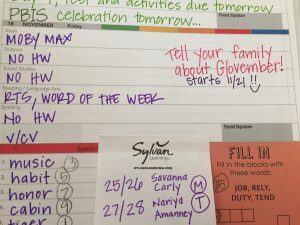 test and activities due tomorrow
PBIS celebration tomorrow...
Parent Signature
18 NOVEMBER Friday
Math
MOBY MAX
Science
NO HW
Social Studies
NO HW
Reading / Language Arts
RTS, WORD OF THE WEEK
Spelling
NO HW
V/CV
Tell your family
about Glovember!
starts 11/21
Parent Signature
Spelling
1. music 3
2. habit 5
3. honor 7
4. cabin 9
tiger
Sylvan
Learning
25/26 Savanna
Carly M
27/28 Nariya
Amanney T
FILL IN
Fill in the blocks with
these words.
JOB, RELY,
DUTY, TEND
15